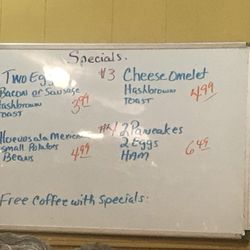 Specials.
Two Eggs
Bacon or Sausage
Hashbrown
Toast
3.99
#3 Cheese Omelet
Hashbrown
Toast
4.99
Huevos ala Mexican
Small Potatoes
Beans
4.99
#4 2 Pancakes
2 Eggs
Ham
6.49
Free Coffee with Specials: